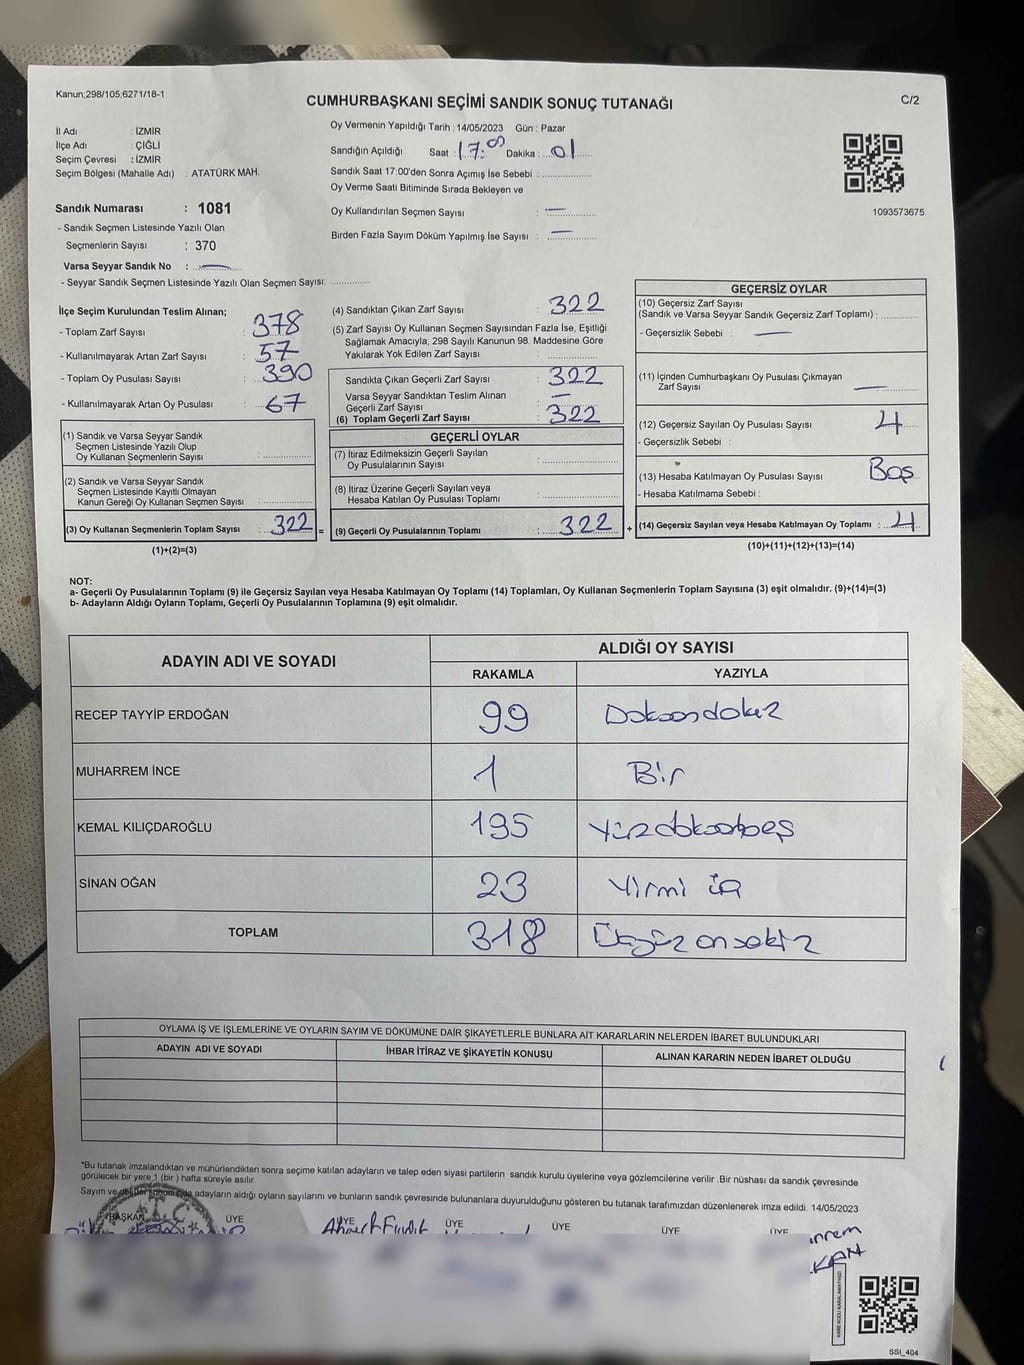 Kanun;298/105;6271/18-1
CUMHURBAŞKANI SEÇİMİ SANDIK SONUÇ TUTANAĞI
C/2
İl Adı : İZMİR
İlçe Adı : ÇİĞLİ
Seçim Çevresi : İZMİR
Seçim Bölgesi (Mahalle Adı) : ATATÜRK MAH.
Sandık Numarası : 1081
- Sandık Seçmen Listesinde Yazılı Olan
Seçmenlerin Sayısı : 370
Varsa Seyyar Sandık No : —
- Seyyar Sandık Seçmen Listesinde Yazılı Olan Seçmen Sayısı:
Oy Vermenin Yapıldığı Tarih : 14/05/2023 Gün : Pazar
Sandığın Açıldığı Saat : 17:00 Dakika : 01
Sandık Saat 17:00'den Sonra Açımış İse Sebebi :
Oy Verme Saati Bitiminde Sırada Bekleyen ve
Oy Kullandırılan Seçmen Sayısı : —
Birden Fazla Sayım Döküm Yapılmış İse Sayısı : —
1093573675
İlçe Seçim Kurulundan Teslim Alınan;
- Toplam Zarf Sayısı : 378
- Kullanılmayarak Artan Zarf Sayısı : 57
- Toplam Oy Pusulası Sayısı : 390
- Kullanılmayarak Artan Oy Pusulası : 67
(1) Sandık ve Varsa Seyyar Sandık
Seçmen Listesinde Yazılı Olup
Oy Kullanan Seçmenlerin Sayısı :
(2) Sandık ve Varsa Seyyar Sandık
Seçmen Listesinde Kayıtlı Olmayan
Kanun Gereği Oy Kullanan Seçmen Sayısı :
(3) Oy Kullanan Seçmenlerin Toplam Sayısı : 322 =
(1)+(2)=(3)
(4) Sandıktan Çıkan Zarf Sayısı : 322
(5) Zarf Sayısı Oy Kullanan Seçmen Sayısından Fazla İse, Eşitliği
Sağlamak Amacıyla; 298 Sayılı Kanunun 98. Maddesine Göre
Yakılarak Yok Edilen Zarf Sayısı
Sandıkta Çıkan Geçerli Zarf Sayısı : 322
Varsa Seyyar Sandıktan Teslim Alınan
Geçerli Zarf Sayısı : —
(6) Toplam Geçerli Zarf Sayısı : 322
GEÇERLİ OYLAR
(7) İtiraz Edilmeksizin Geçerli Sayılan
Oy Pusulalarının Sayısı :
(8) İtiraz Üzerine Geçerli Sayılan veya
Hesaba Katılan Oy Pusulası Toplamı :
(9) Geçerli Oy Pusulalarının Toplamı : 322 +
GEÇERSİZ OYLAR
(10) Geçersiz Zarf Sayısı
(Sandık ve Varsa Seyyar Sandık Geçersiz Zarf Toplamı) :
- Geçersizlik Sebebi : —
(11) İçinden Cumhurbaşkanı Oy Pusulası Çıkmayan
Zarf Sayısı : —
(12) Geçersiz Sayılan Oy Pusulası Sayısı : 4
- Geçersizlik Sebebi :
(13) Hesaba Katılmayan Oy Pusulası Sayısı : Boş
- Hesaba Katılmama Sebebi :
(14) Geçersiz Sayılan veya Hesaba Katılmayan Oy Toplamı : 4
(10)+(11)+(12)+(13)=(14)
NOT:
a- Geçerli Oy Pusulalarının Toplamı (9) ile Geçersiz Sayılan veya Hesaba Katılmayan Oy Toplamı (14) Toplamları, Oy Kullanan Seçmenlerin Toplam Sayısına (3) eşit olmalıdır. (9)+(14)=(3)
b- Adayların Aldığı Oyların Toplamı, Geçerli Oy Pusulalarının Toplamına (9) eşit olmalıdır.
ADAYIN ADI VE SOYADI
ALDIĞI OY SAYISI
RAKAMLA YAZIYLA
RECEP TAYYİP ERDOĞAN 99 Doksandokuz
MUHARREM İNCE 1 Bir
KEMAL KILIÇDAROĞLU 195 Yüzdoksanbeş
SİNAN OĞAN 23 Yirmi üç
TOPLAM 318 Üçyüz onsekiz
OYLAMA İŞ VE İŞLEMLERİNE VE OYLARIN SAYIM VE DÖKÜMÜNE DAİR ŞİKAYETLERLE BUNLARA AİT KARARLARIN NELERDEN İBARET BULUNDUKLARI
ADAYIN ADI VE SOYADI İHBAR İTİRAZ VE ŞİKAYETİN KONUSU ALINAN KARARIN NEDEN İBARET OLDUĞU
*Bu tutanak imzalandıktan ve mühürlendikten sonra seçime katılan adayların ve talep eden siyasi partilerin sandık kurulu üyelerine veya gözlemcilerine verilir .Bir nüshası da sandık çevresinde
görülecek bir yere 1 (bir ) hafta süreyle asılır.
Sayım ve döküm sonunda adayların aldığı oyların sayılarını ve bunların sandık çevresinde bulunanlara duyurulduğunu gösteren bu tutanak tarafımızdan düzenlenerek imza edildi. 14/05/2023
BAŞKAN ÜYE ÜYE ÜYE ÜYE ÜYE ÜYE
T.C.
Ahmet
KARE KODU KARALAMAYINIZ!
SSI_404